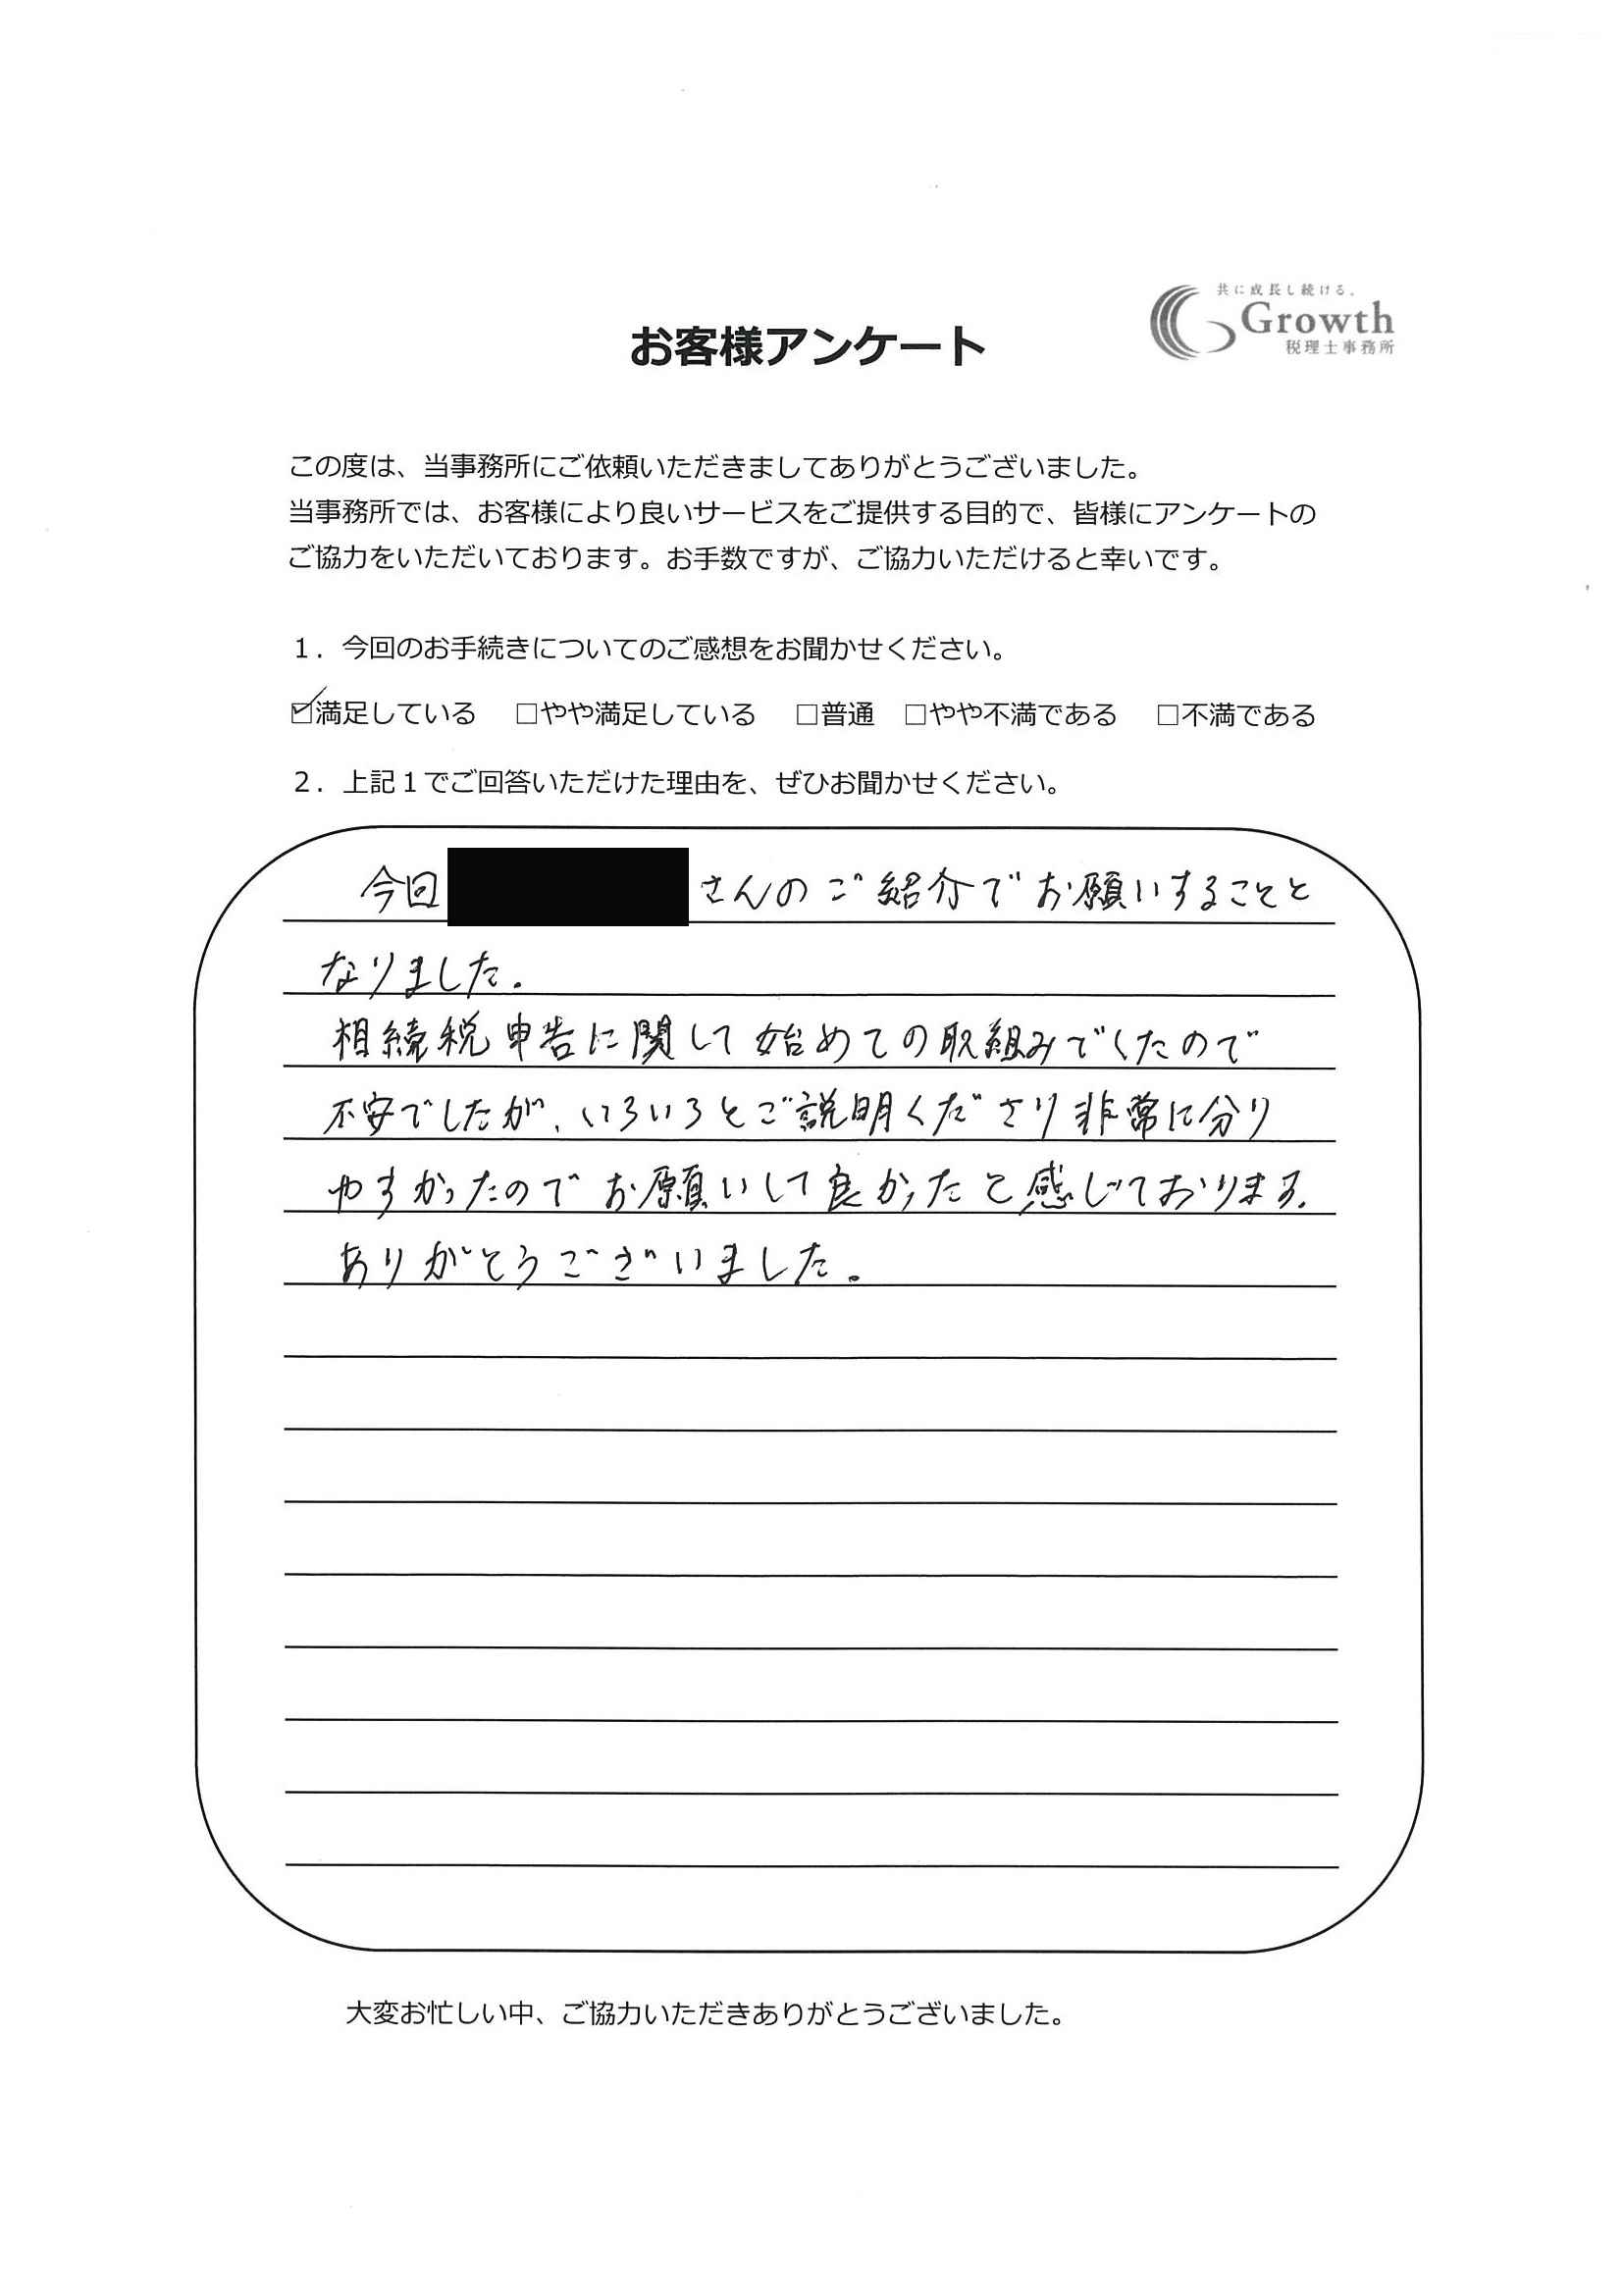 共に成長し続ける。
Growth
税理士事務所
お客様アンケート
この度は、当事務所にご依頼いただきましてありがとうございました。
当事務所では、お客様により良いサービスをご提供する目的で、皆様にアンケートの
ご協力をいただいております。お手数ですが、ご協力いただけると幸いです。
１．今回のお手続きについてのご感想をお聞かせください。
☑満足している　□やや満足している　□普通　□やや不満である　□不満である
２．上記１でご回答いただけた理由を、ぜひお聞かせください。
今回 さんのご紹介でお願いすることと
なりました。
相続税申告に関して始めての取組みでくたので
不安でしたが、いろいろとご説明くださり非常に分り
やすかったのでお願いして良かったと感じております。
ありがとうございました。
大変お忙しい中、ご協力いただきありがとうございました。